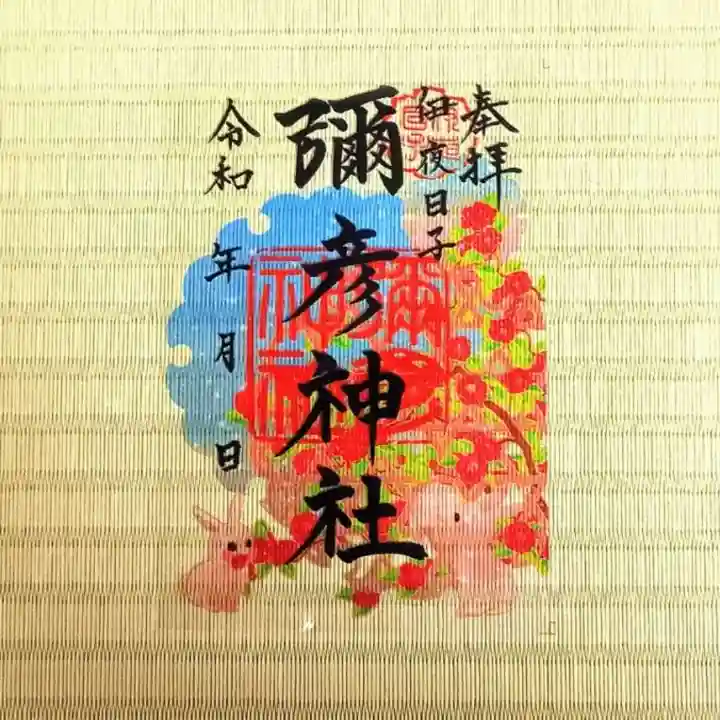 奉拝
伊夜日子
彌彦神社
令和 年 月 日